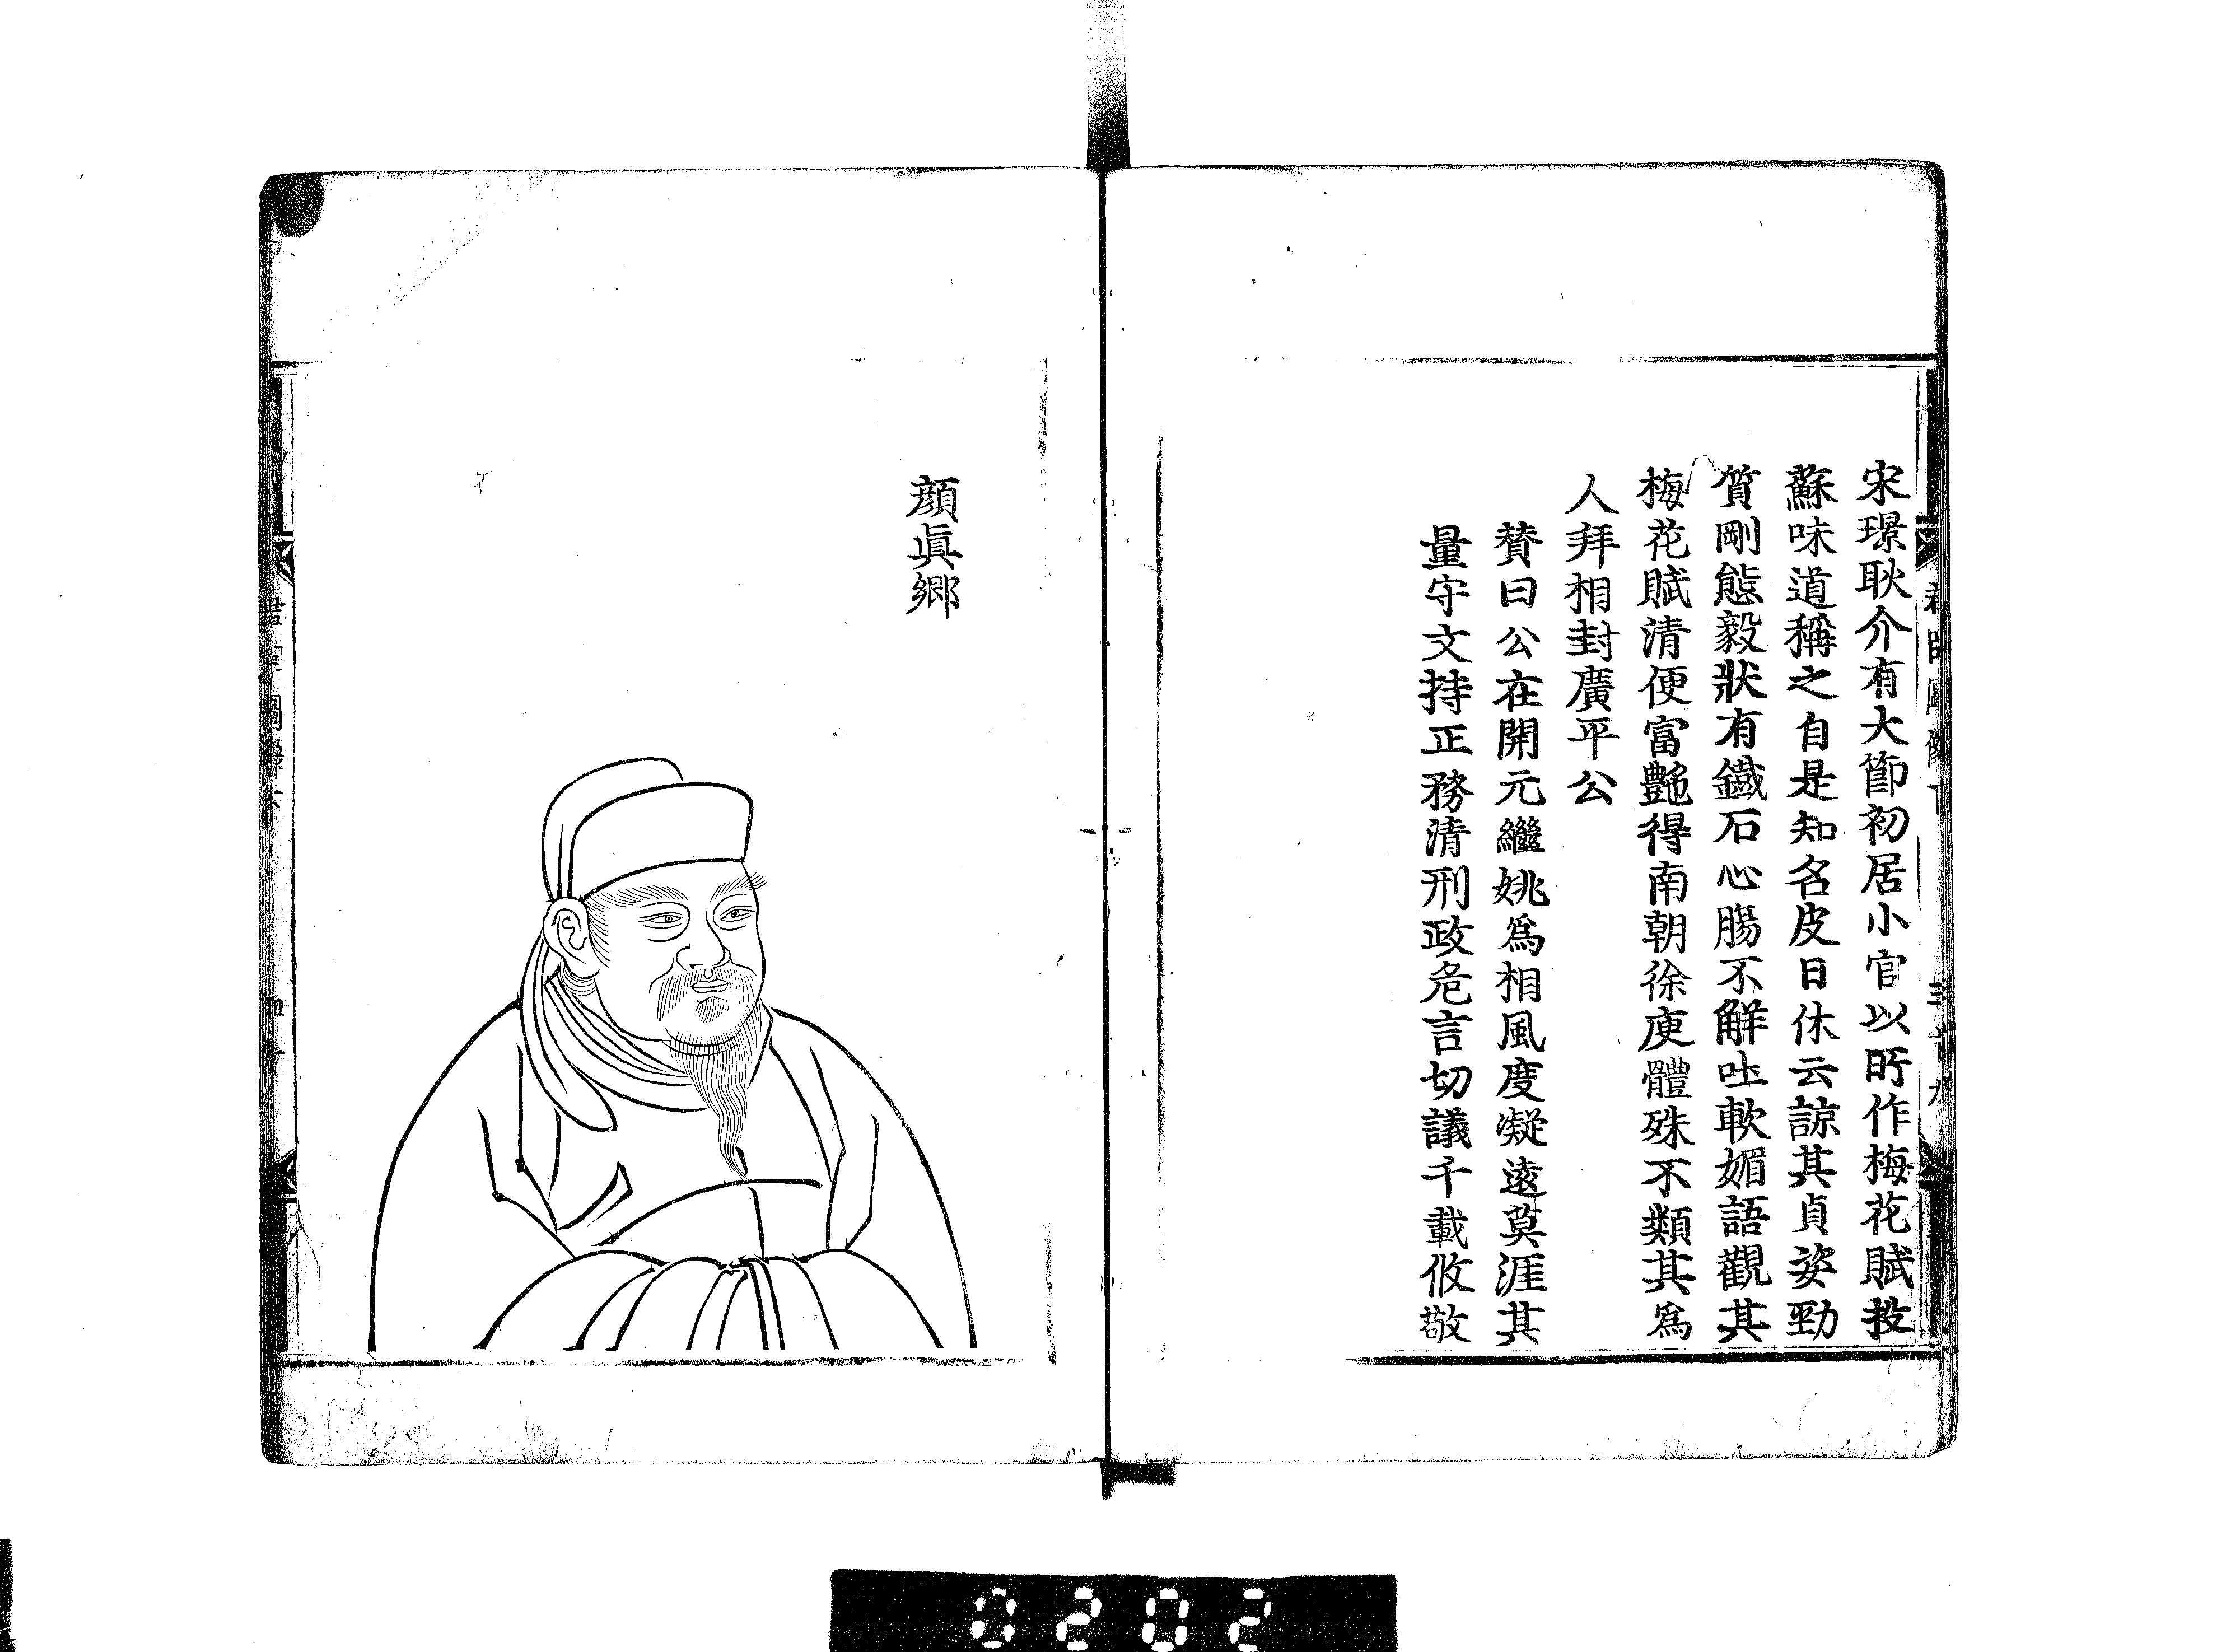 宋璟耿介有大節初居小官以所作梅花賦投
蘇味道稱之自是知名皮日休云諒其貞姿勁
質剛態毅狀有鐵石心腸不解吐軟媚語觀其
梅花賦清便富艷得南朝徐庾體殊不類其爲
人拜相封廣平公
贊曰公在開元繼姚爲相風度凝遠莫涯其
量守文持正務清刑政危言切議千載攸敬
顏眞鄉
0202